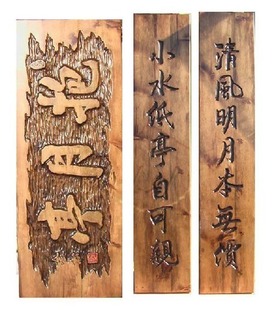 抱月亭
清風明月本無價
小水低亭自可親